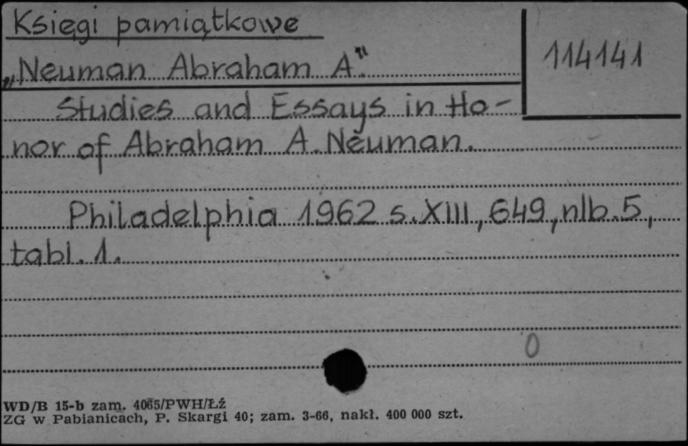 Księgi pamiątkowe
114141
„Neuman Abraham A."
Studies and Essays in Ho-
nor of Abraham A. Neuman.
Philadelphia 1962 s. XIII, 649, nlb. 5,
tabl. 1.
0
WD/B 15-b zam. 4065/PWH/Łź
ZG w Pabianicach, P. Skargi 40; zam. 3-66, nakł. 400 000 szt.